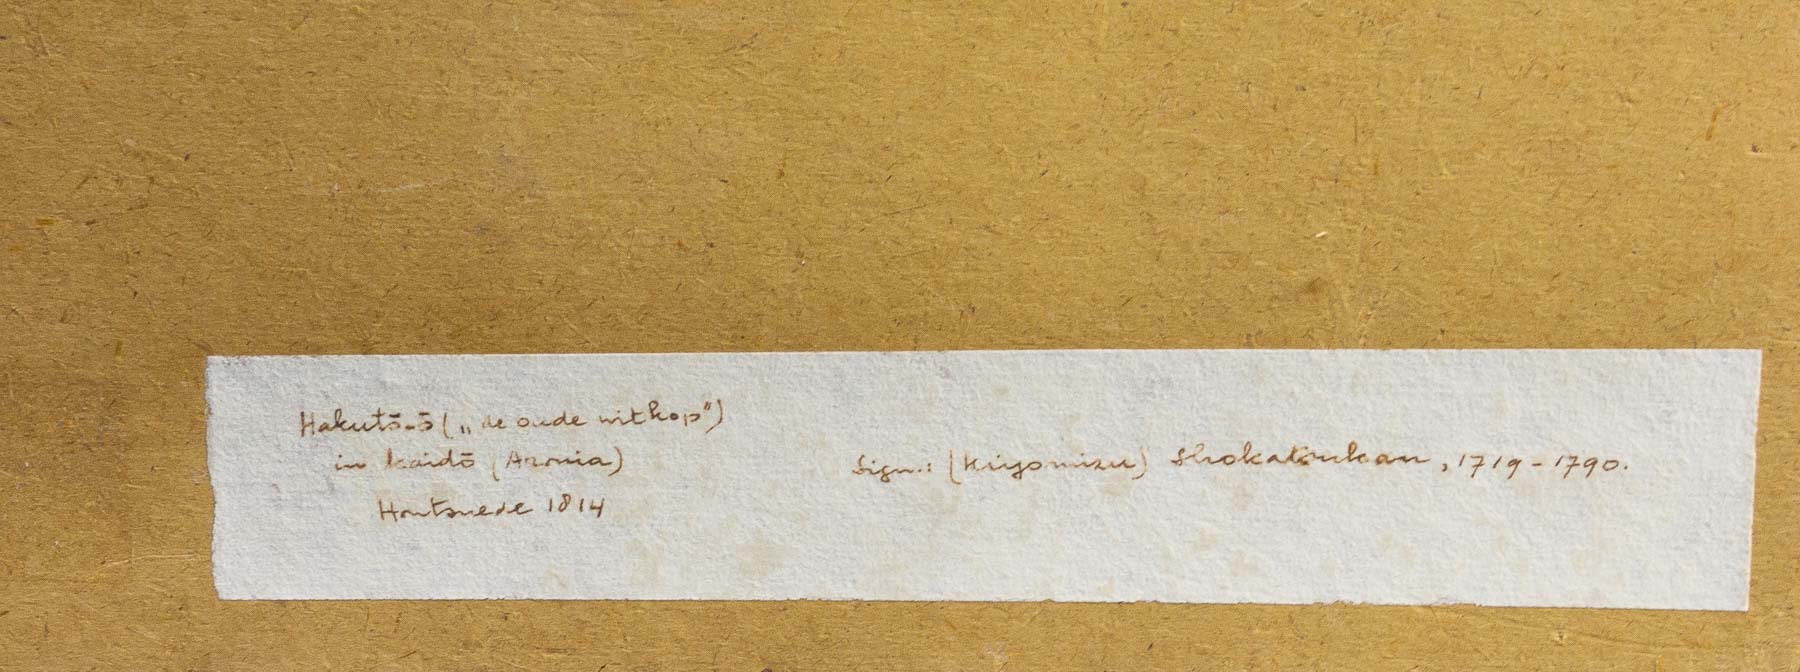 Hakutō-ō („de oude witkop")
in kaidō (Aronia)
Houtsnede 1814
Sign.: (Kiyomizu) Shokatsukan, 1719-1790.